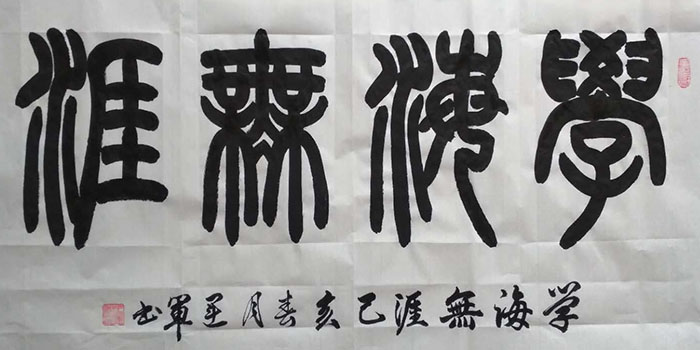 學海無涯
学海無涯己亥春月軍书